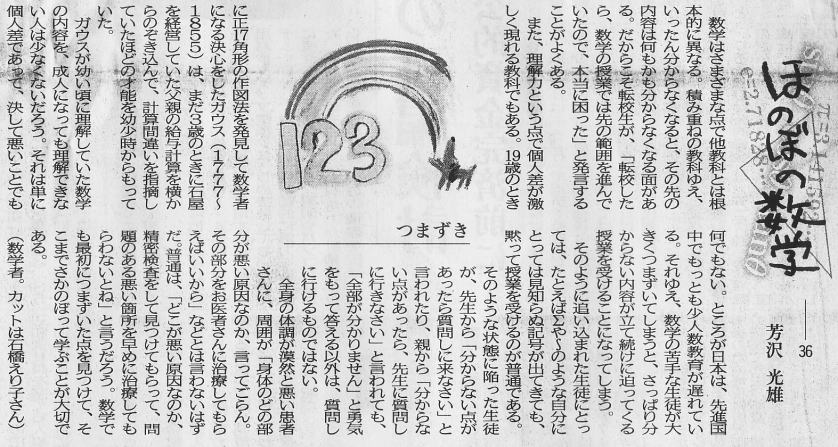 ほのぼの数学
36
芳沢 光雄
e=2.71828…
数学はさまざまな点で他教科とは根
本的に異なる。積み重ねの教科ゆえ、
いったん分からなくなると、その先の
内容は何もかも分からなくなる面があ
る。だからこそ転校生が、「転校した
ら、数学の授業では先の範囲を進んで
いたので、本当に困った」と発言する
ことがよくある。
また、理解力という点で個人差が激
しく現れる教科でもある。19歳のとき
123
つまずき
に正17角形の作図法を発見して数学者
になる決心をしたガウス(1777〜
1855)は、まだ3歳のときに石屋
を経営していた父親の給与計算を横か
らのぞき込んで、計算間違いを指摘し
ていたほどの才能を幼少時からもって
いた。
ガウスが幼い頃に理解していた数学
の内容を、成人になっても理解できな
い人は少なくないだろう。それは単に
個人差であって、決して悪いことでも
何でもない。ところが日本は、先進国
中でもっとも少人数教育が遅れてい
る。それゆえ、数学の苦手な生徒が大
きくつまずいてしまうと、さっぱり分
からない内容が立て続けに迫ってくる
授業を受けることになってしまう。
そのように追い込まれた生徒にとっ
ては、たとえばΣや∫のような自分に
とっては見知らぬ記号が出てきても、
黙って授業を受けるのが普通である。
そのような状態に陥った生徒
が、先生から「分からない点が
あったら質問しに来なさい」と
言われたり、親から「分からな
い点があったら、先生に質問し
に行きなさい」と言われても、
「全部が分かりません」と勇気
をもって答える以外は、質問し
に行けるものではない。
全身の体調が漠然と悪い患者
さんに、周囲が「身体のどの部
分が悪い原因なのか、言ってごらん。
その部分をお医者さんに治療してもら
えばいいから」などとは言わないはず
だ。普通は、「どこが悪い原因なのか、
精密検査をして見つけてもらって、問
題のある悪い箇所を早めに治療しても
らわないとね」と言うだろう。数学で
も最初につまずいた点を見つけて、そ
こまでさかのぼって学ぶことが大切で
ある。
(数学者。カットは石橋えり子さん)